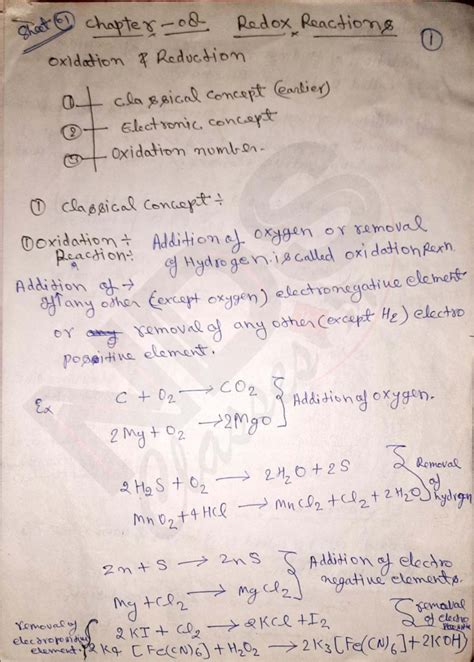 Sheet 01 Chapter-08 Redox Reactions
1
Oxidation & Reduction
① Classical concept (earlier)
② Electronic concept
③ Oxidation number.
① Classical concept ÷
① Oxidation ÷ Addition of oxygen or removal
Reaction: of Hydrogen. is called oxidation Rexn.
Addition of →
of any other (except oxygen) electronegative element
or any removal of any other (except H2) electro
positive element.
Ex C + O2 → CO2
2Mg + O2 → 2MgO } Addition of oxygen.
2H2S + O2 → 2H2O + 2S
MnO2 + 4HCl → MnCl2 + Cl2 + 2H2O } Removal of hydrogen
Zn + S → ZnS
Mg + Cl2 → MgCl2 } Addition of electro negative elements.
removal of electropositive element. { 2KI + Cl2 → 2KCl + I2 } removal of electro
2K4 [Fe(CN)6] + H2O2 → 2K3 [Fe(CN)6] + 2KOH
NDS
Classes